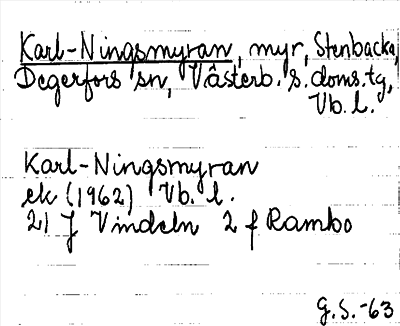 Karl-Ningsmyran, myr, Stenbacka,
Degerfors sn, Västerb. s. doms. tg,
Vb. l.
Karl-Ningsmyran
ek (1962) Vb. l.
21 J Vindeln 2 f Rambo
G.S.-63